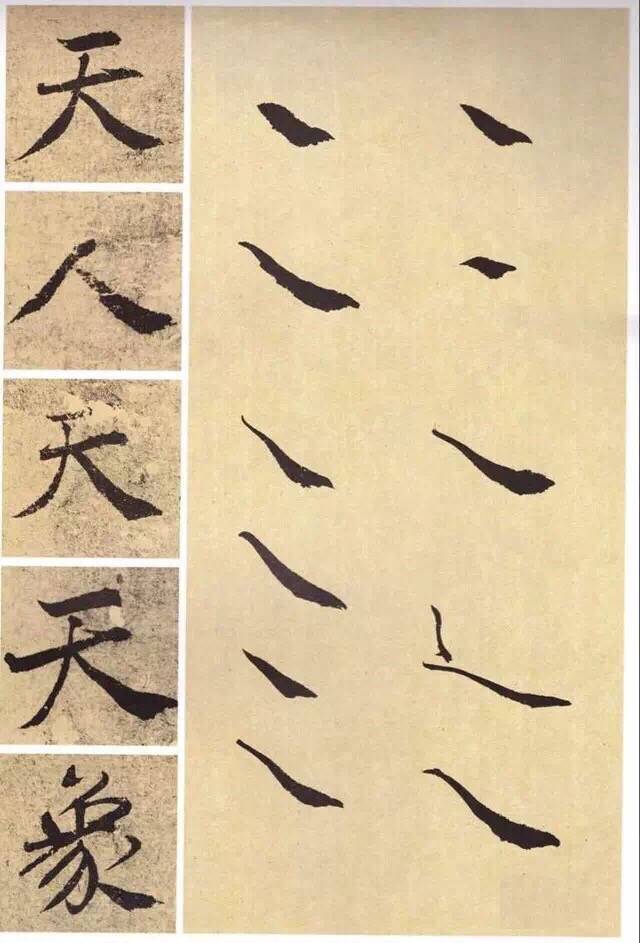 天
人
天
天
象